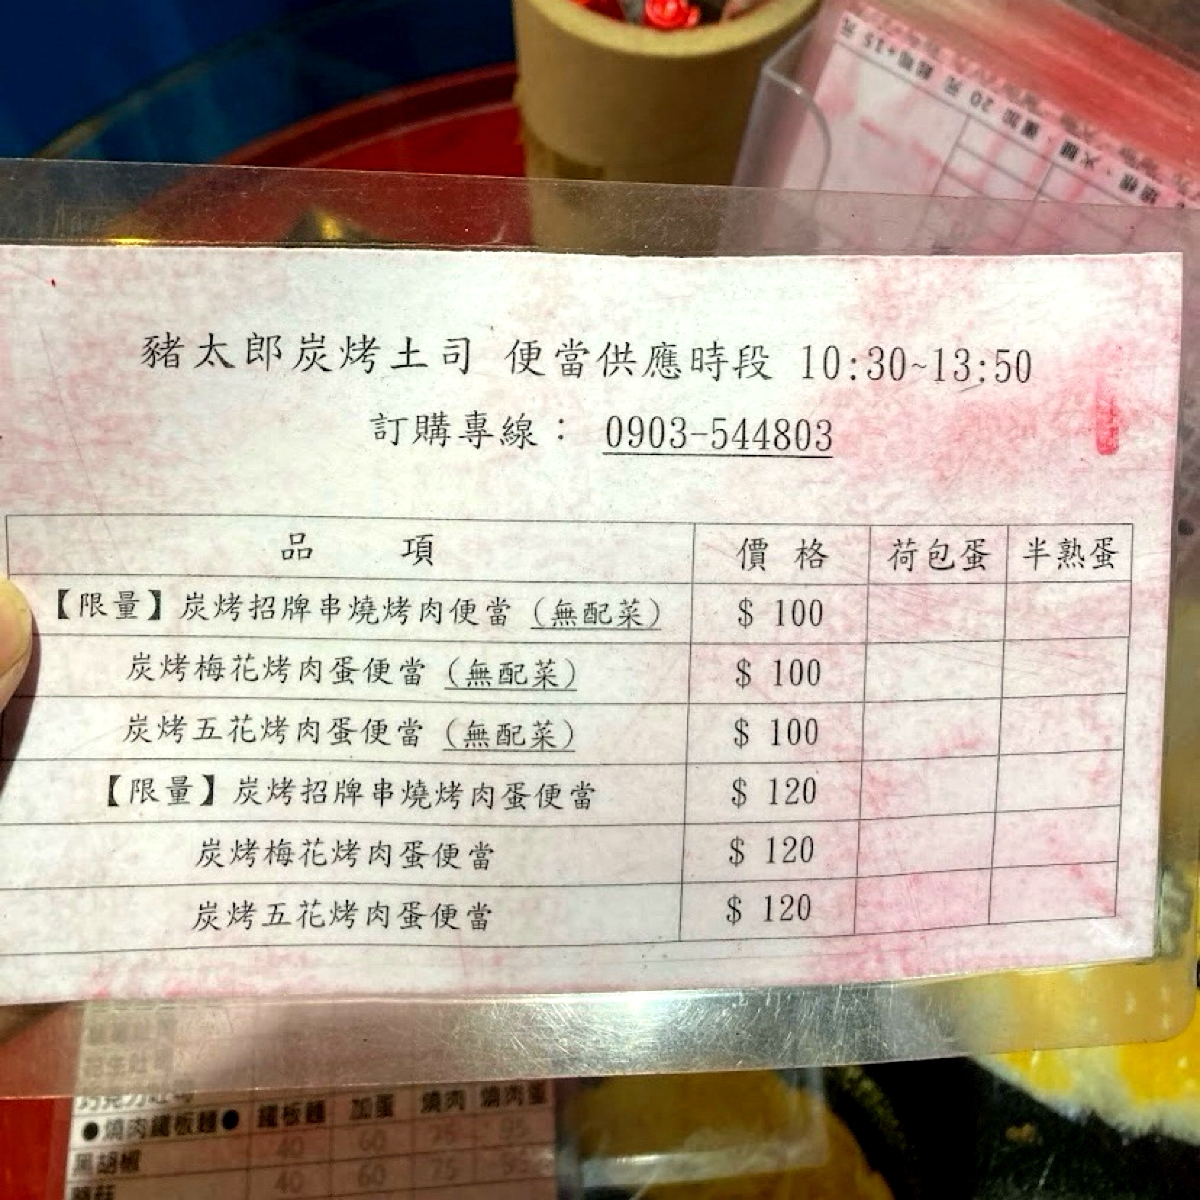 豬太郎炭烤土司 便當供應時段 10:30~13:50
訂購專線： 0903-544803
品 項 價 格 荷包蛋 半熟蛋
【限量】炭烤招牌串燒烤肉便當 (無配菜) $ 100
炭烤梅花烤肉蛋便當 (無配菜) $ 100
炭烤五花烤肉蛋便當 (無配菜) $ 100
【限量】炭烤招牌串燒烤肉蛋便當 $ 120
炭烤梅花烤肉蛋便當 $ 120
炭烤五花烤肉蛋便當 $ 120
●燒肉鐵板麵● 鐵板麵 加蛋 燒肉 燒肉蛋
黑胡椒 40 60 75 95
蘑菇 40 60 75 95